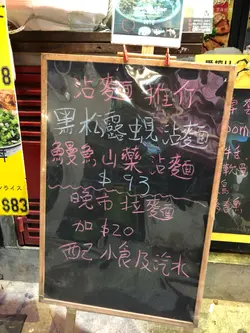 沾麵推介
黑松露蜆沾麵
鰻魚山藥沾麵
$93
晚市拉麵
加$20
配小食及汽水
8
$83